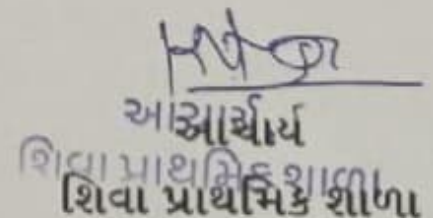 આચાર્ય
શિવા પ્રાથમિક શાળા